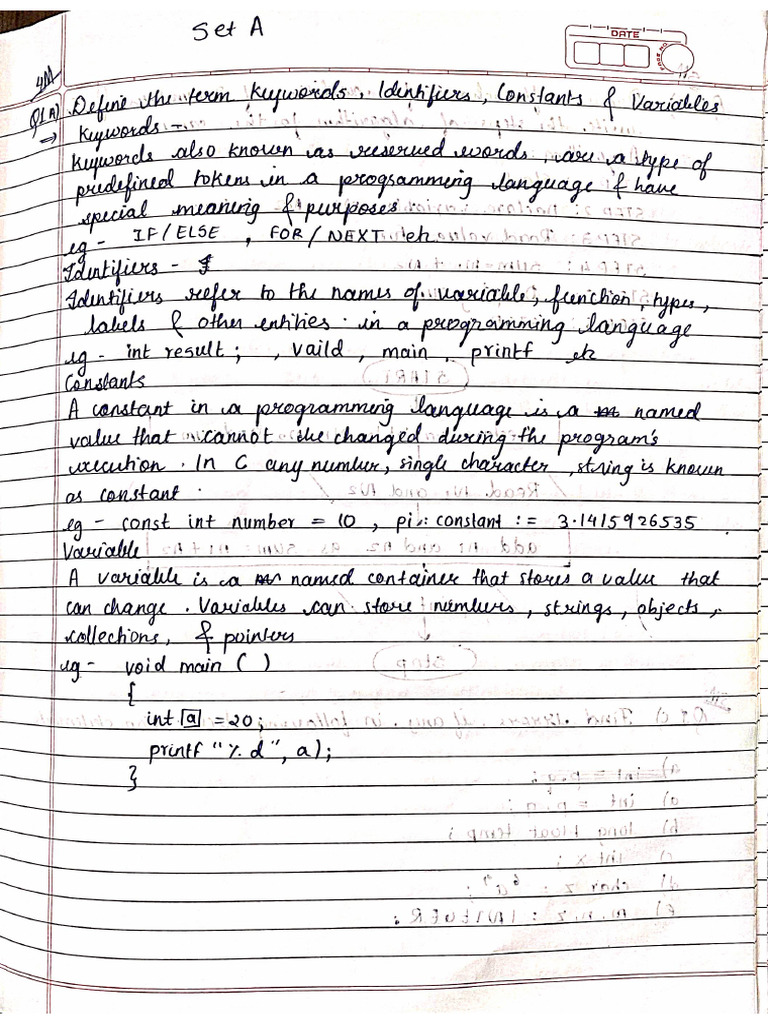 Set A
DATE
PAGE NO
4M
Q1 A) Define the term keywords, Identifiers, Constants & Variables
→ Keywords -
Keywords also known as reserved words, are a type of
predefined tokens in a programming language & have
special meaning & purposes
eg - IF/ELSE , FOR/NEXT etc
Identifiers -
Identifiers refer to the names of variable, function, types,
labels & other entities in a programming language
eg - int result; , vaild , main , printf etc
Constants
A constant in a programming language is a named
value that cannot be changed during the program's
execution. In C any number, single character, string is known
as constant.
eg - const int number = 10 , pi: constant := 3.1415926535
Variable
A variable is a named container that stores a value that
can change. Variables can store numbers, strings, objects,
collections, & pointers
eg - void main ( )
{
int a = 20;
printf "%d", a);
}